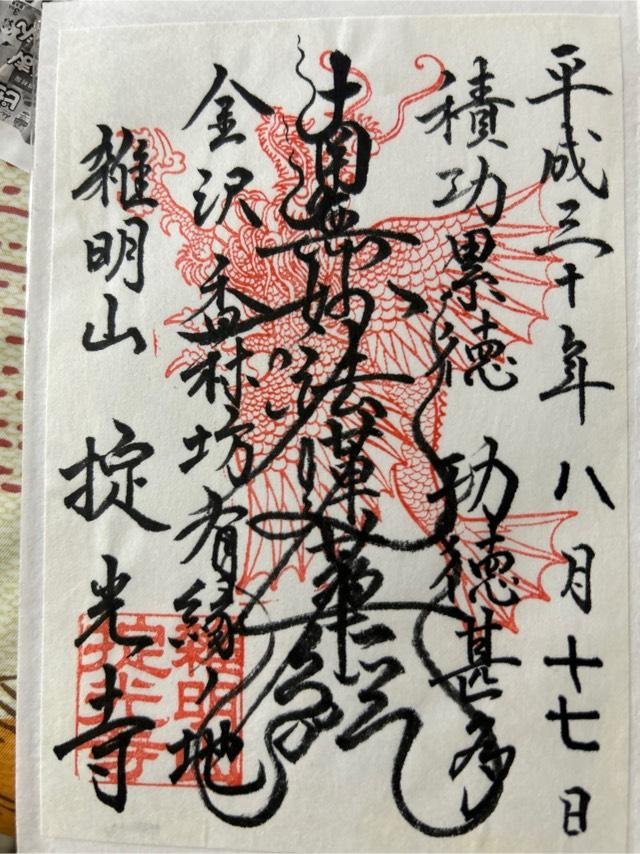 平成三十年 八月十七日
積功累徳 功徳甚多
南無妙法蓮華経
金沢 香林坊有縁ノ地
雑明山 掟光寺